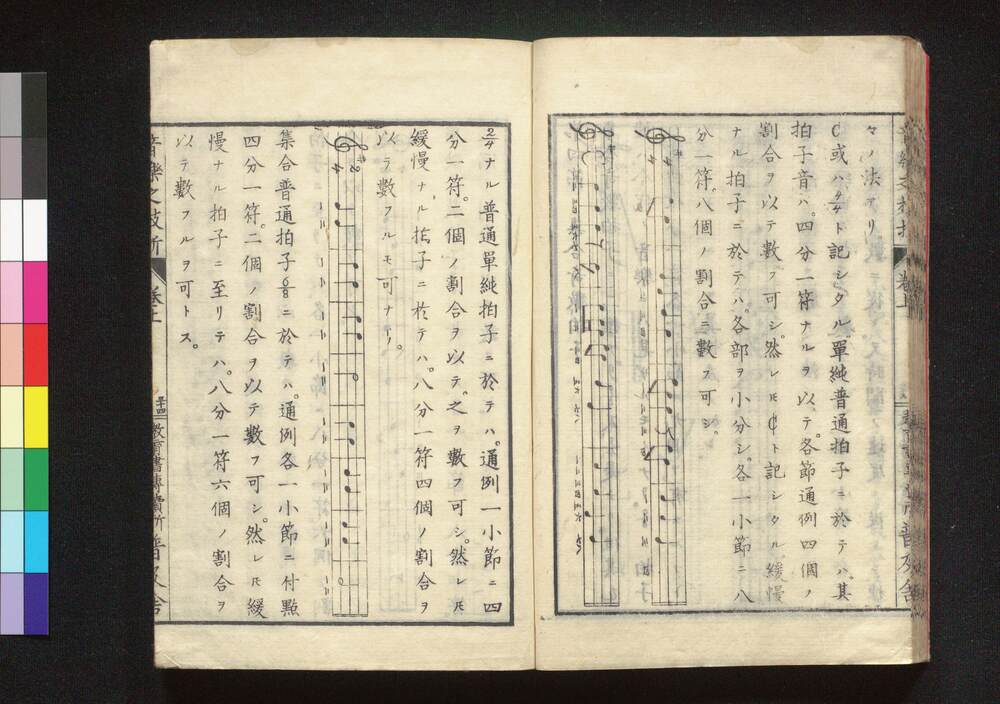 マノ法アリ
C或ハ4/4ト記シタル單純普通拍子ニ於テハ、其
拍子音ハ。四分一符ナルヲ以テ。各節通例四個ノ
割合ヲ以テ數フ可シ。然レ𪜈₵ト記シタル。緩慢
ナル拍子ニ於テハ。各部ヲ小分シ。各一小節ニ八
分一符。八個ノ割合ニ數フ可シ。
2/4ナル普通單純拍子ニ於テハ。通例一小節ニ四
分一符。二個ノ割合ヲ以テ。之ヲ數フ可シ。然レ𪜈
緩慢ナル拍子ニ於テハ。八分一符四個ノ割合ヲ
以テ數フルモ可ナリ。
集合普通拍子6/8ニ於テハ。通例各一小節ニ付點
四分一符。二個ノ割合ヲ以テ數フ可シ。然レ𪜈緩
慢ナル拍子ニ至リテハ。八分一符六個ノ割合ヲ
以テ數フルヲ可トス。
音樂之枝折
卷上
二十四
教育書専賣所
普及舎